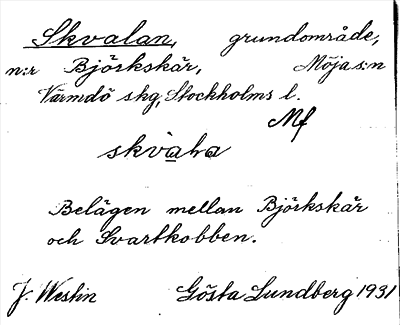 Skvalan, grundområde,
n:r Björkskär, Möja s:n
Värmdö skg, Stockholms l.
Mf
Belägen mellan Björkskär
och Svartkobben.
J. Westin Gösta Lundberg 1931